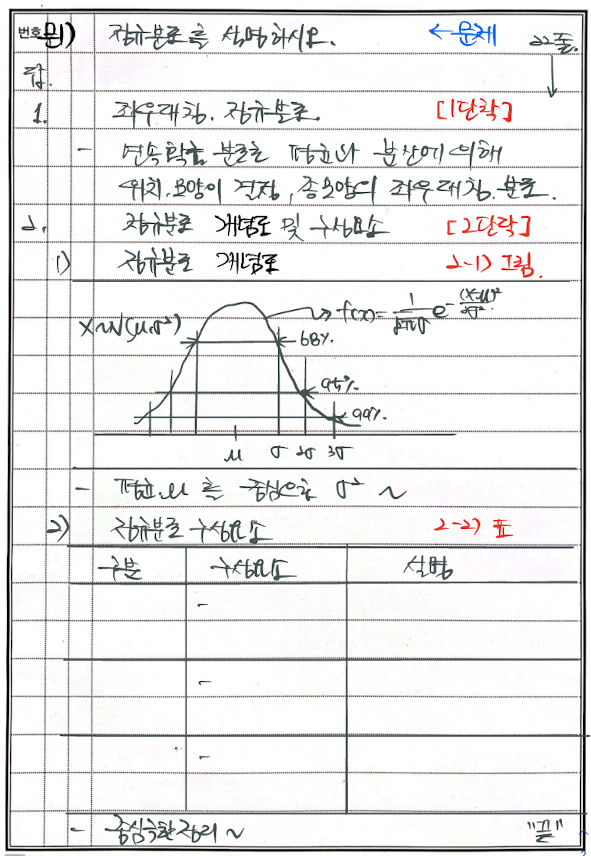 번호 문1) 정규분포를 설명하시오. ← 문제 22줄.
답.
1. 좌우대칭. 정규분포. [1단락]
- 연속확률 분포로 평균과 분산에 의해
위치.모양이 결정, 종모양의 좌우대칭.분포.
2. 정규분포 개념도 및 구성요소 [2단락]
1) 정규분포 개념도 2-1) 그림.
X~N(μ,σ²) f(x)=1/√2πσ e^-(x-μ)²/2σ²
68%.
95%.
99%.
μ σ 2σ 3σ
- 평균 μ 를 중심으로 σ² ~
2) 정규분포 구성요소 2-2) 표
구분 구성요소 설명
-
-
-
- 중심극한정리 ~ "끝"